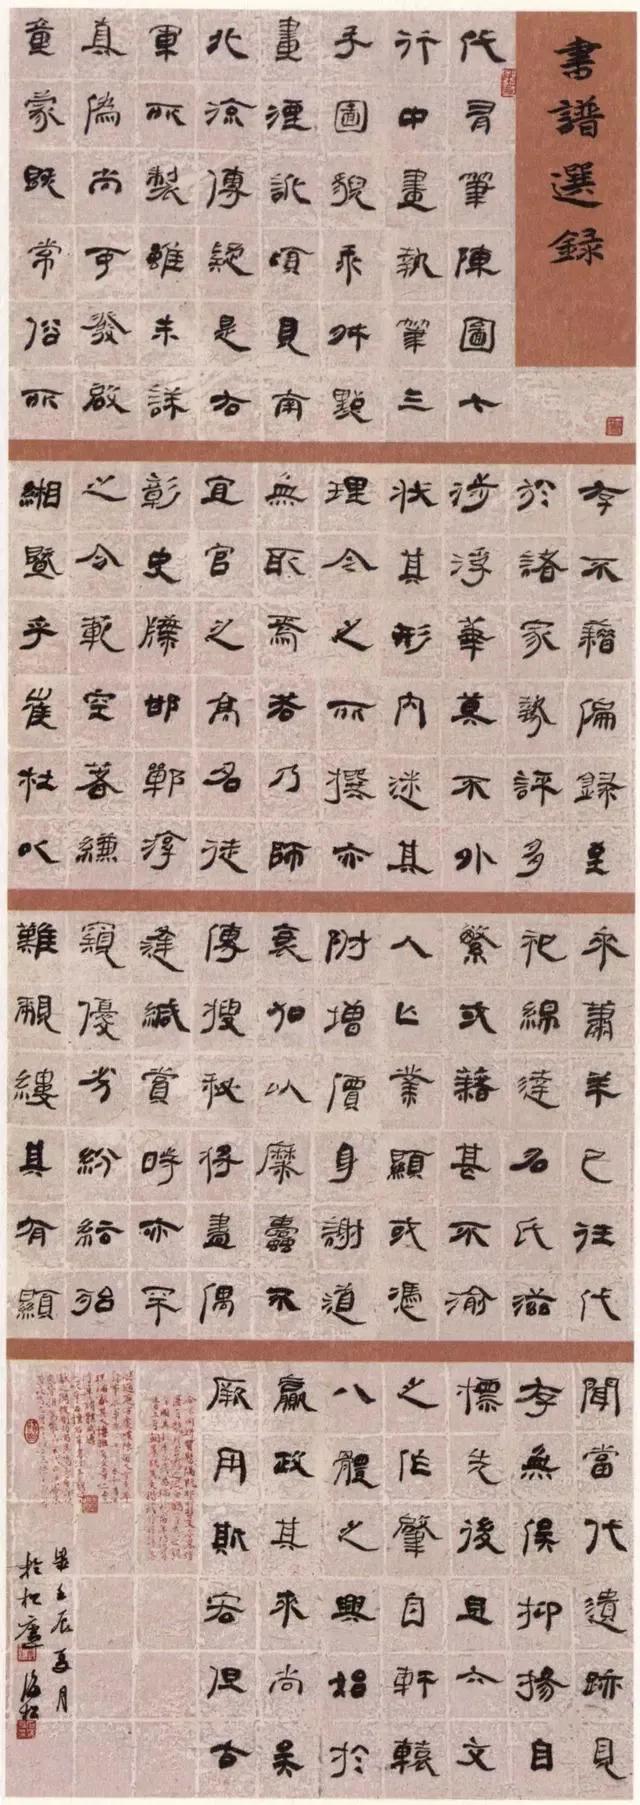 書譜選錄
代有筆陳圖七
行中畫執筆三
手圖貌乖舛點
畫湮訛頃見南
北流傳疑是右
軍所製雖未詳
真偽尚可發啟
童蒙既常俗所
存不藉編錄至
於諸家勢評多
涉浮華莫不外
狀其形內迷其
理今之所撰亦
無取焉若乃師
宜官之高名徒
彰史牒邯鄲淳
之令範空著縑
緗暨乎崔杜以
來蕭羊已往代
祀綿遠名氏滋
繁或藉甚不渝
人亡業顯或憑
附增價身謝道
衰加以糜蠹不
傳搜秘將盡偶
逢緘賞時亦罕
窺優劣紛紜殆
難覼縷其有顯
聞當代遺跡見
存無俟抑揚自
標先後且六文
之作肇自軒轅
八體之興始於
嬴政其來尚矣
厥用斯宏但古
壬辰夏月
於松廬